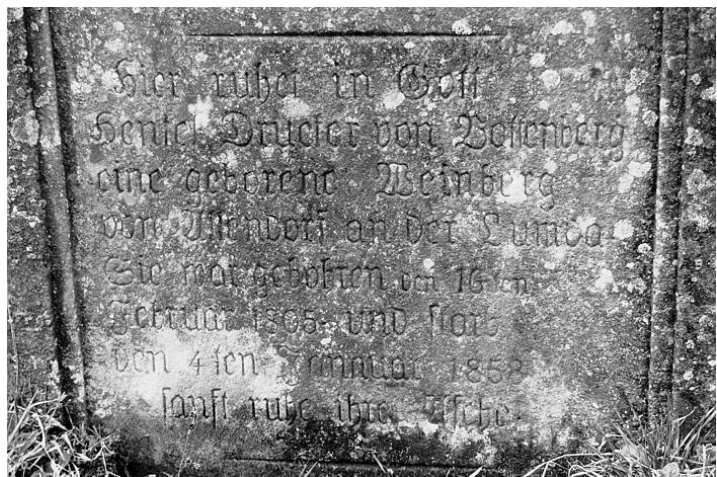 Hier ruhet in Gott
Henkel Drucker von Bottenberg
eine geborene Weinberg
von Allendorf an der Lumda
Sie war gebohren den 16ten
Februar 1805 und starb
den 4ten Jannuar 1858
sanft ruhe ihre Asche